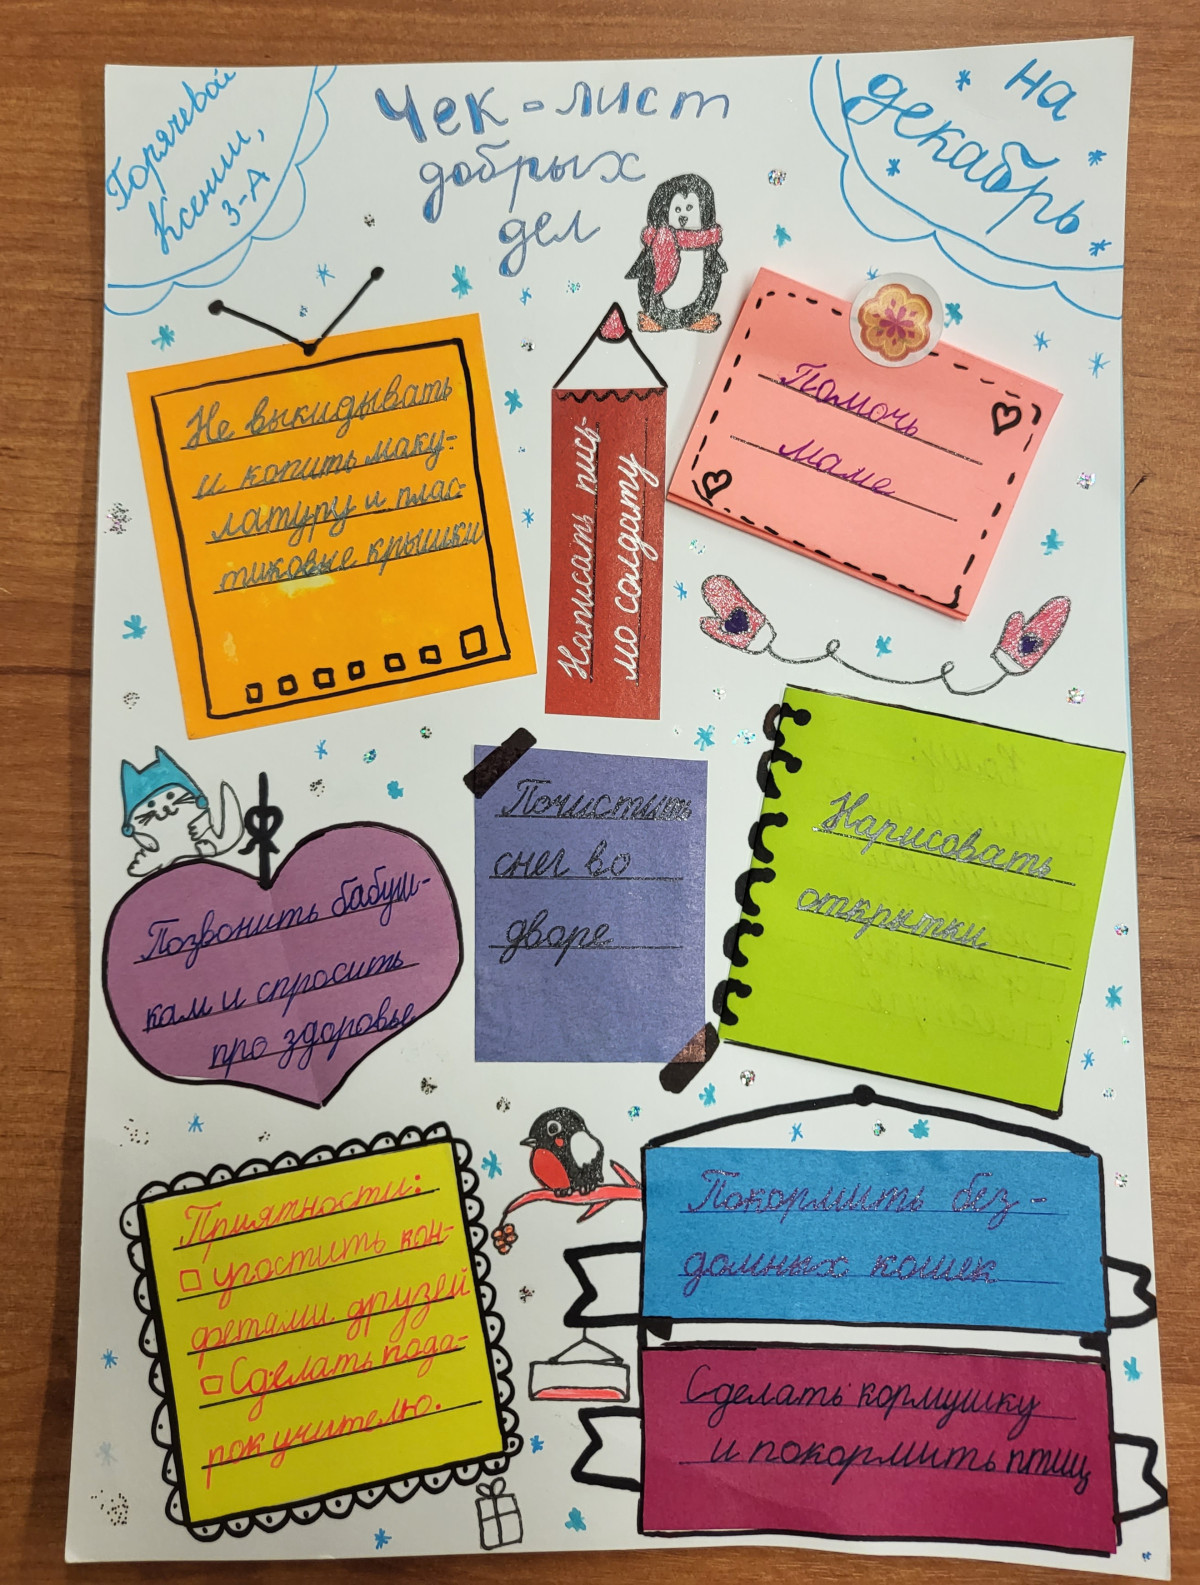 Горячевой
Ксении,
3-А
Чек-лист
добрых
дел
на
декабрь
Не выкидывать
и копить маку-
латуру и плас-
тиковые крышки
Написать пись-
мо солдату
Помочь
маме
Позвонить бабуш-
кам и спросить
про здоровье
Почистить
снег во
дворе
Нарисовать
открытки
Приятности:
угостить кон-
фетами друзей
Сделать пода-
рок учителю.
Покормить без-
домных кошек
Сделать кормушку
и покормить птиц